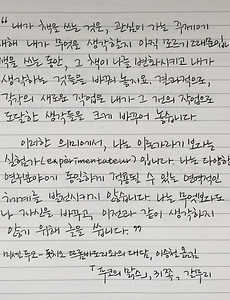 "내가 책을 쓰는 것은, 관심이 가는 주제에
대해 내가 무엇을 생각할지 아직 모르기 때문입니다.
책을 쓰는 동안, 그 책이 나를 변화시키고 내가
생각하는 것들을 바꿔 놓지요. 결과적으로,
각각의 새로운 작업은 내가 그 전의 작업으로
도달한 생각들을 크게 바꾸어 놓습니다.
이러한 의미에서, 나는 이론가라기 보다는
실험가(expérimentateur)입니다. 나는 다양한
연구분야에 동일하게 적용될 수 있는 연역적인
체계를 발전시키지 않습니다. 나는 무엇보다도
나 자신을 바꾸고, 이전과 같이 생각하지
않기 위해 글을 씁니다."
미셸 푸코 - 둣치오 뜨롬바도리와의 대담, 이승철 옮김
「푸코의 맑스」, 31쪽, 갈무리